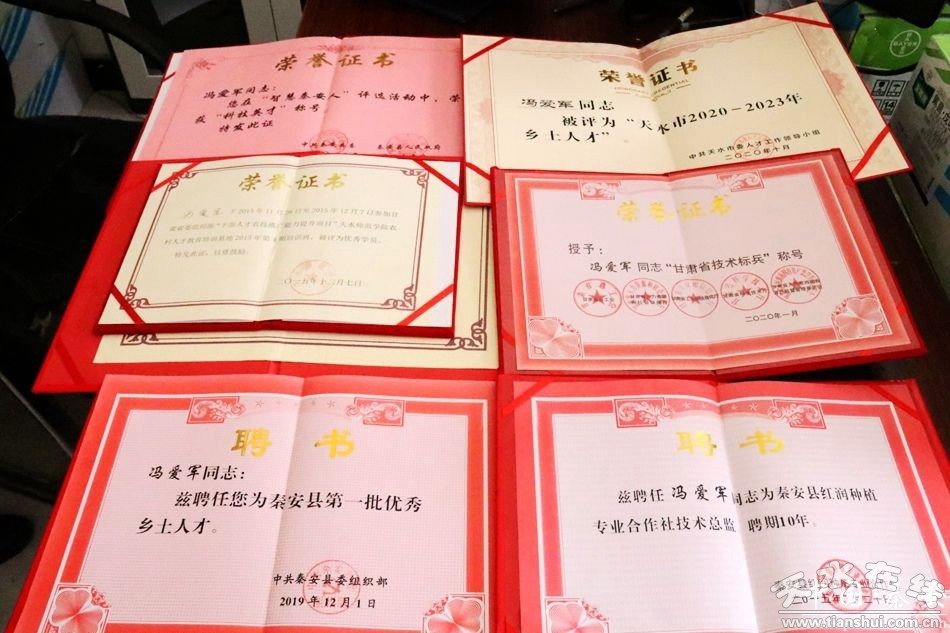 荣誉证书
冯爱军同志:
您在"智慧秦安人"评选活动中,荣
获"科技英才"称号
特发此证
荣誉证书
HONORARY CREDENTIAL
冯爱军同志
被评为"天水市2020-2023年
乡土人才"
中共天水市委人才工作领导小组
二〇二〇年十月
荣誉证书
特发此证,以资鼓励。
二〇一五年十二月七日
荣誉证书
授予:
冯爱军同志"甘肃省技术标兵"称号
二〇二〇年一月
聘书
冯爱军同志:
兹聘任您为秦安县第一批优秀
乡土人才。
中共秦安县委组织部
2019年12月1日
聘书
兹聘任 冯爱军 同志为秦安县红润种植
专业合作社技术总监 聘期10年。
天水在线
www.tianshui.com.cn
BAYER